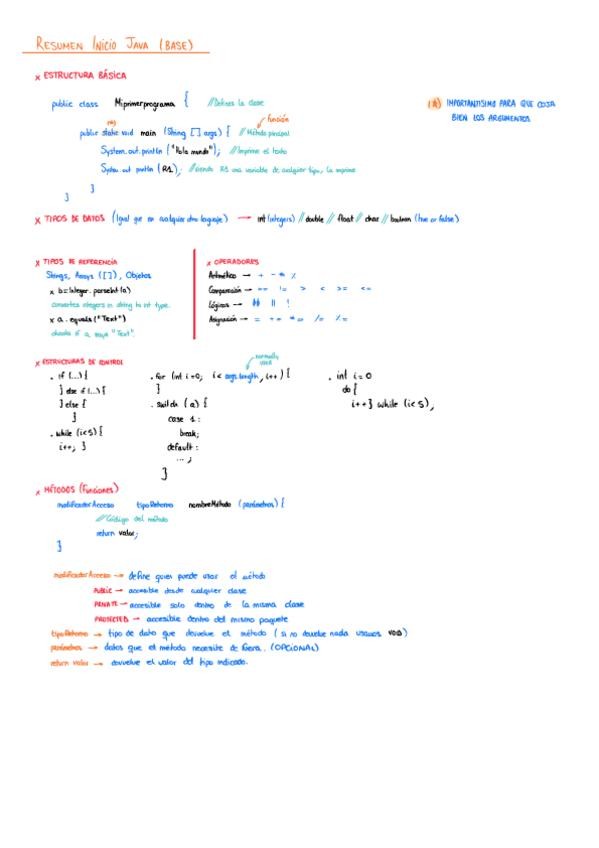 RESUMEN INICIO JAVA (BASE)
x ESTRUCTURA BÁSICA
public class Miprimerprograma { //Defines la clase
(*) IMPORTANTISIMO PARA QUE COJA
BIEN LOS ARGUMENTOS
función
public static void main (String [] args) { //Método principal
System.out.println ("Hola mundo"); //Imprime el texto
System.out println (R1); //siendo R1 una variable de cualquier tipo, la imprime
}
}
x TIPOS DE DATOS (Igual que en cualquier otro lenguaje) → int (integers) // double // float // char // boolean (true or false)
x TIPOS DE REFERENCIA
Strings, Arrays ([]), Objetos
x b=Integer.parseInt(a)
convertes integers in string to int type.
x a.equals("Text")
checks if a says "Text".
x OPERADORES
Aritmético → + - * %
Comparación → == != > < >= <=
Lógicos → && || !
Asignación → = += *= /= %=
x ESTRUCTURAS DE CONTROL
. if (...) {
} else if (...) {
} else {
}
. while (i<5) {
i++; }
normally
used
. for (int i=0; i< args.length, i++) {
}
. switch (a) {
case 1:
break;
default:
...;
}
. int i=0
do {
i++} while (i<5);
x MÉTODOS (Funciones)
modificadorAcceso tipoRetorno nombreMétodo (parámetros) {
//Código del método
return valor;
}
modificadorAcceso → define quien puede usar el método
PUBLIC → accesible desde cualquier clase
PRIVATE → accesible solo dentro de la misma clase
PROTECTED → accesible dentro del mismo paquete
tipoRetorno → tipo de dato que devuelve el método (si no devuelve nada usamos VOID)
parámetros → datos que el método necesite de fuera. (OPCIONAL)
return valor → devuelve el valor del tipo indicado.